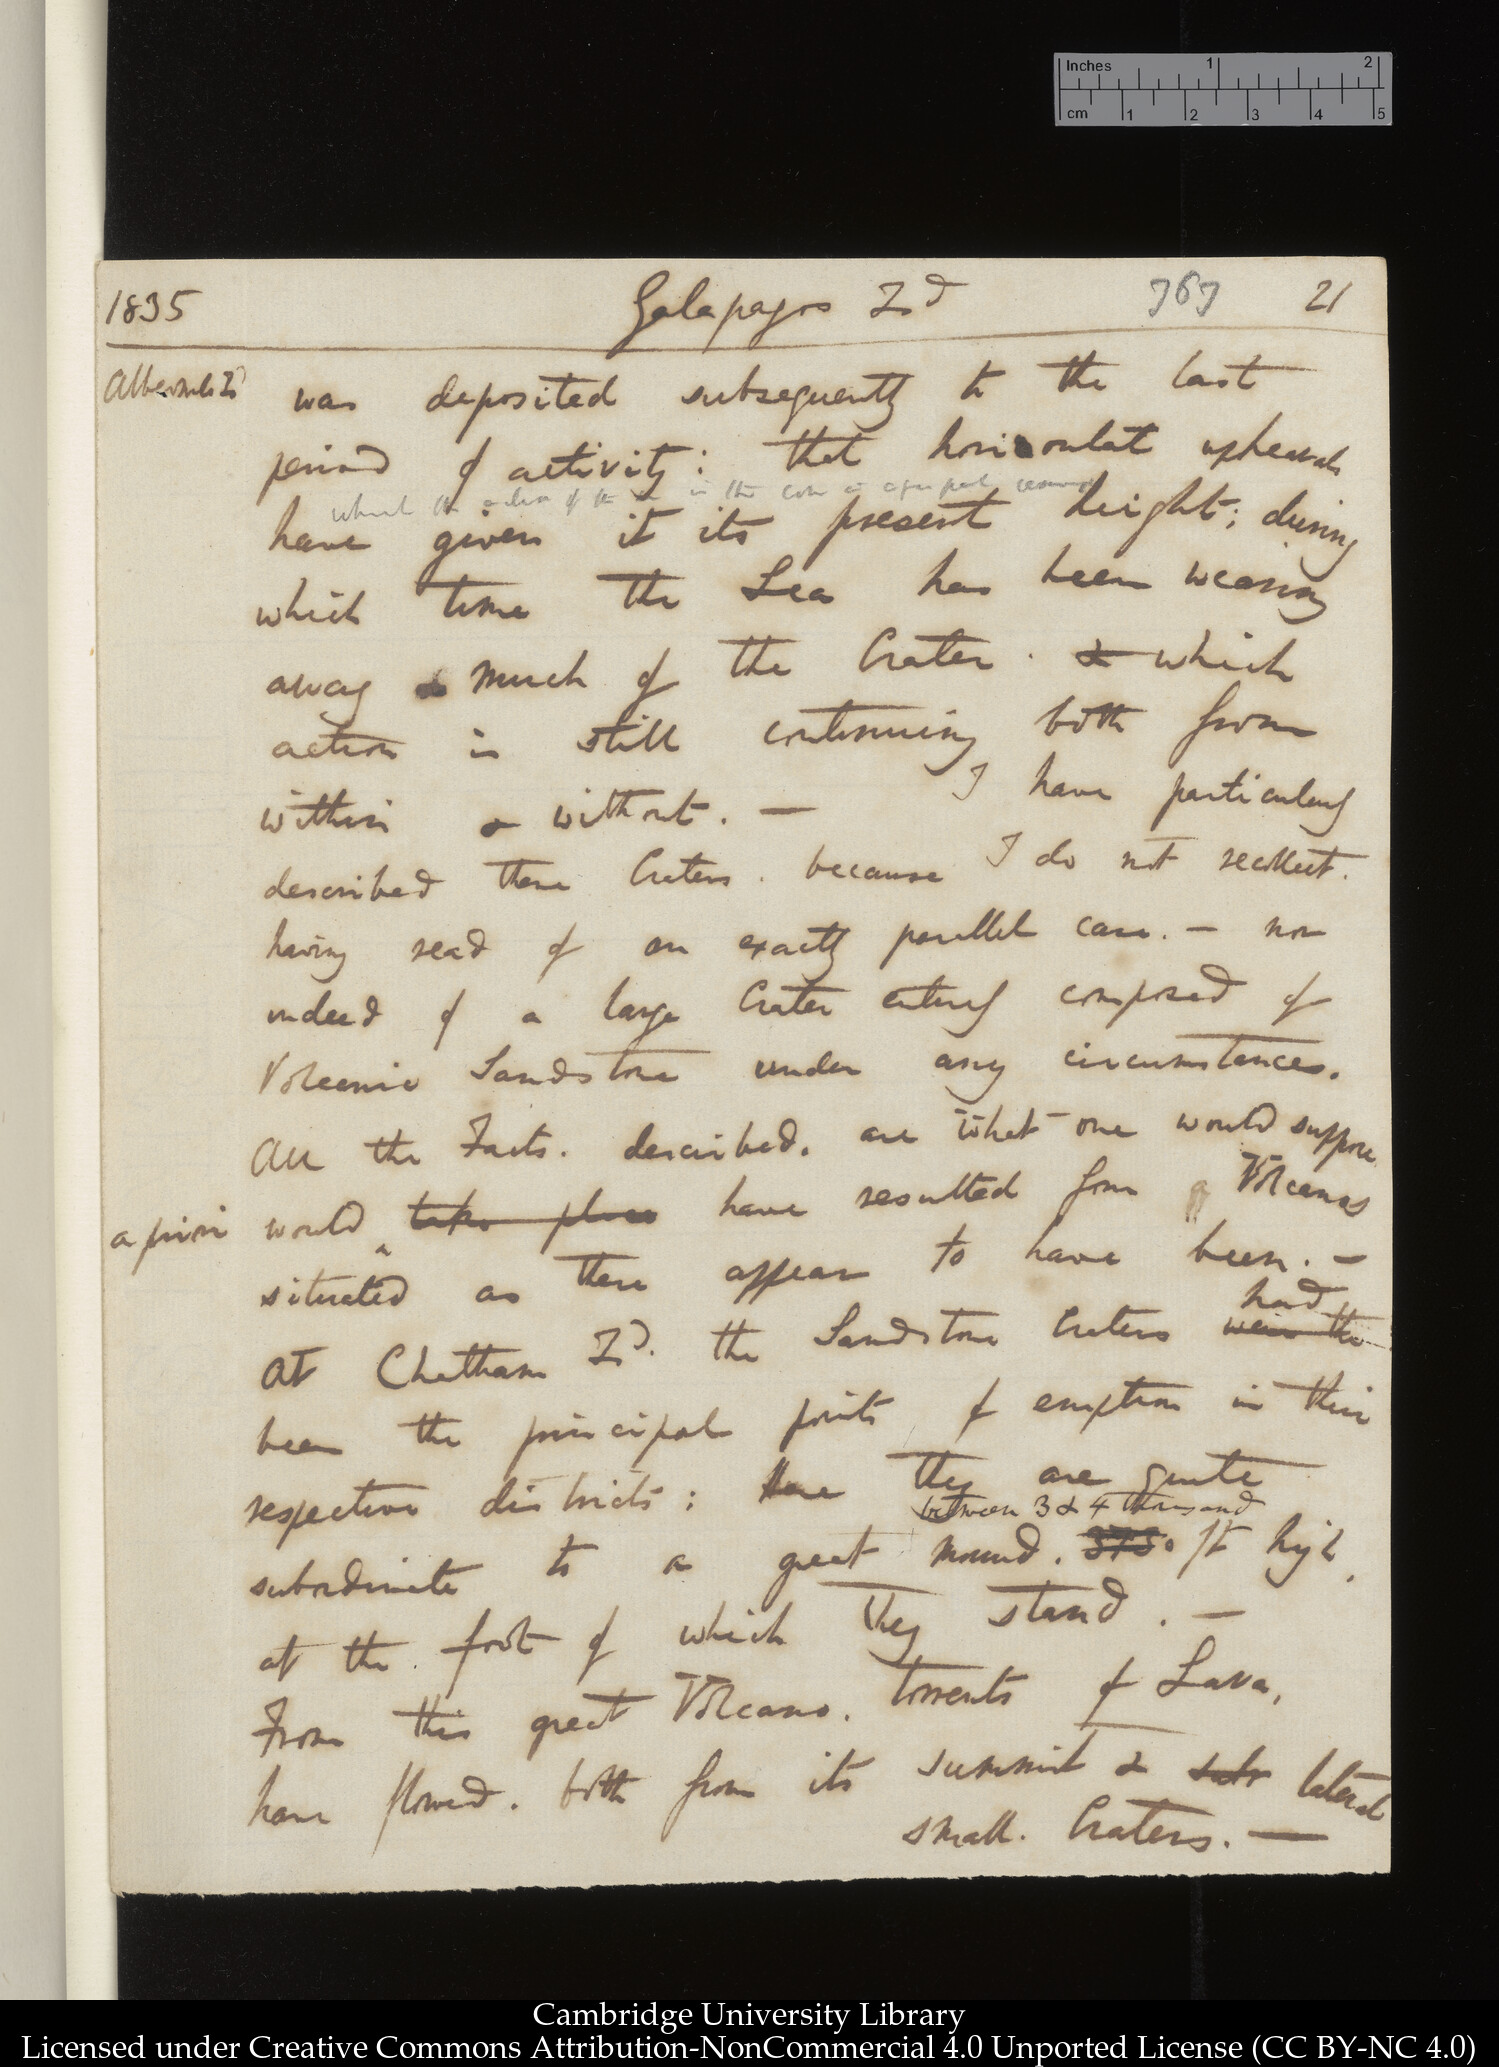 Inches 1 2
cm 1 2 3 4 5
1835 Galapagos Isd 767 21
Albermale Isd was deposited subsequently to the last
period of activity; that horizontal upheavals
in the
have given it its present height; during
which time the Sea has been wearing
away much of the Crater. & which
action is still continuing both from
within & without. — I have particularly
described these Craters. because I do not recollect.
having read of an exactly parallel case. — nor
indeed of a large Crater entirely composed of
Volcanic Sandstone under any circumstances.
All the Facts. described. are what one would suppose
a priori would take place have resulted from Volcanos
situated as these appear to have been. —
had
At Chatham Isd. the Sandstone Craters were the
been the principal points of eruption in their
respective districts; Here they are quite
between 3 & 4 thousand
subordinate to a great mound. 3730 ft high,
at the foot of which they stand. —
From this great Volcano. torrents of Lava,
have flowed. both from its summit & lateral
small. Craters. —
Cambridge University Library
Licensed under Creative Commons Attribution-NonCommercial 4.0 Unported License (CC BY-NC 4.0)